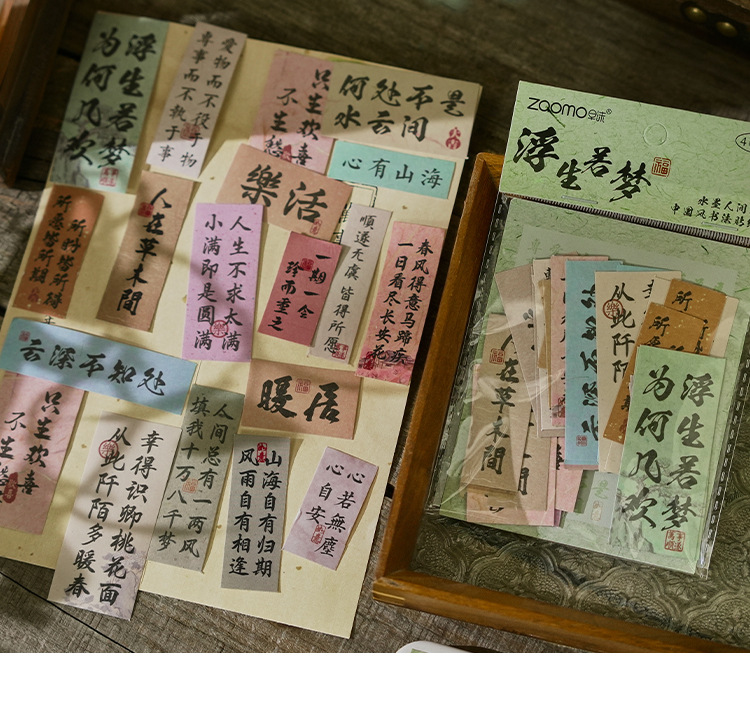 浮生若梦
为何几欢
愛物而不役于物
專事而不執于事
只生欢喜
不生愁
何处不是
水云间
心有山海
樂活
所盼皆所待
所愿皆所期
人在草木間
人生不求太满
小满即是圆满
一期一会
珍而重之
順遂无虞
皆得所愿
春风得意马蹄疾
一日看尽长安花
云深不知处
暖居
只生欢喜
不生愁
幸得识卿桃花面
从此阡陌多暖春
人间总有一两风
填我十万八千梦
山海自有归期
风雨自有相逢
心若無塵
心自安
zaomo®
浮生若梦
水墨人间
中国风书法贴纸
人在草木間
从此阡陌
所
所
浮生若梦
为何几欢